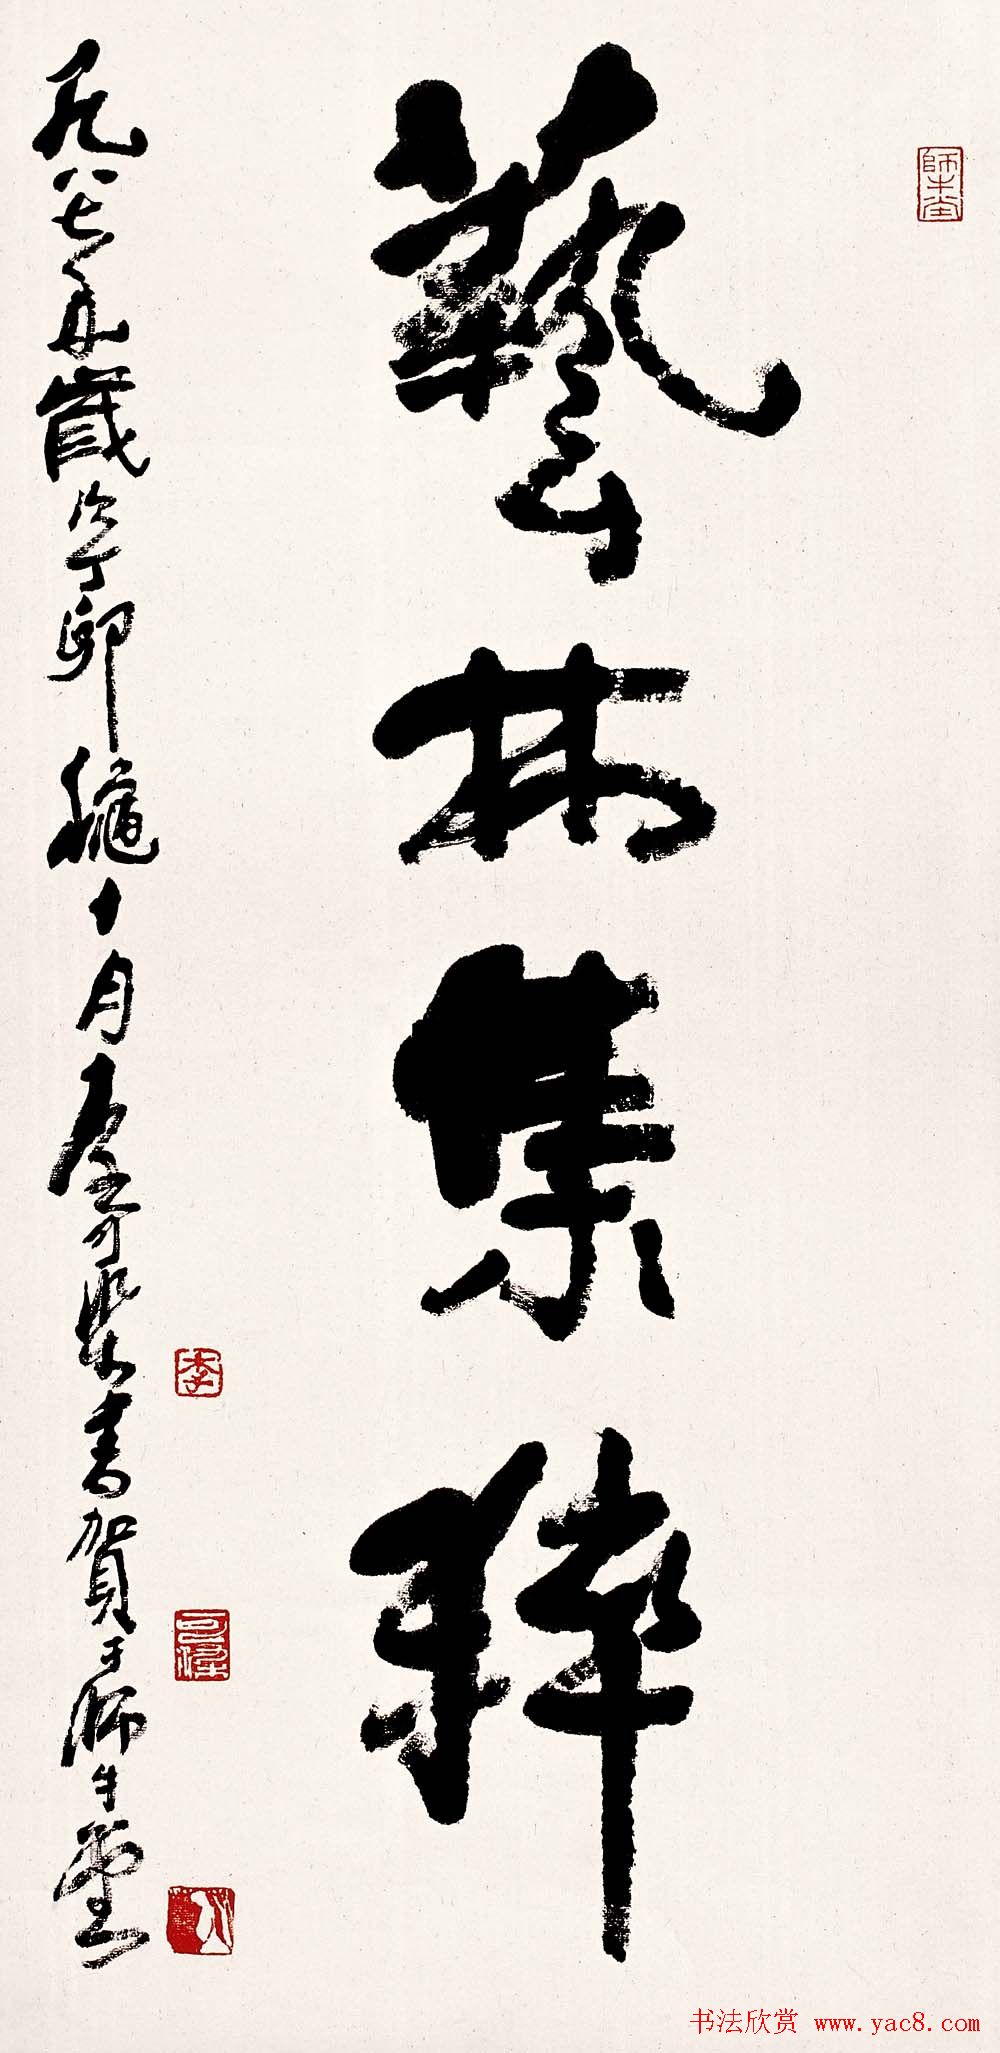 師牛堂
藝林集粹
一九八七年歲次丁卯龝十月可染書賀于師牛堂
李
可染
书法欣赏 www.yac8.com